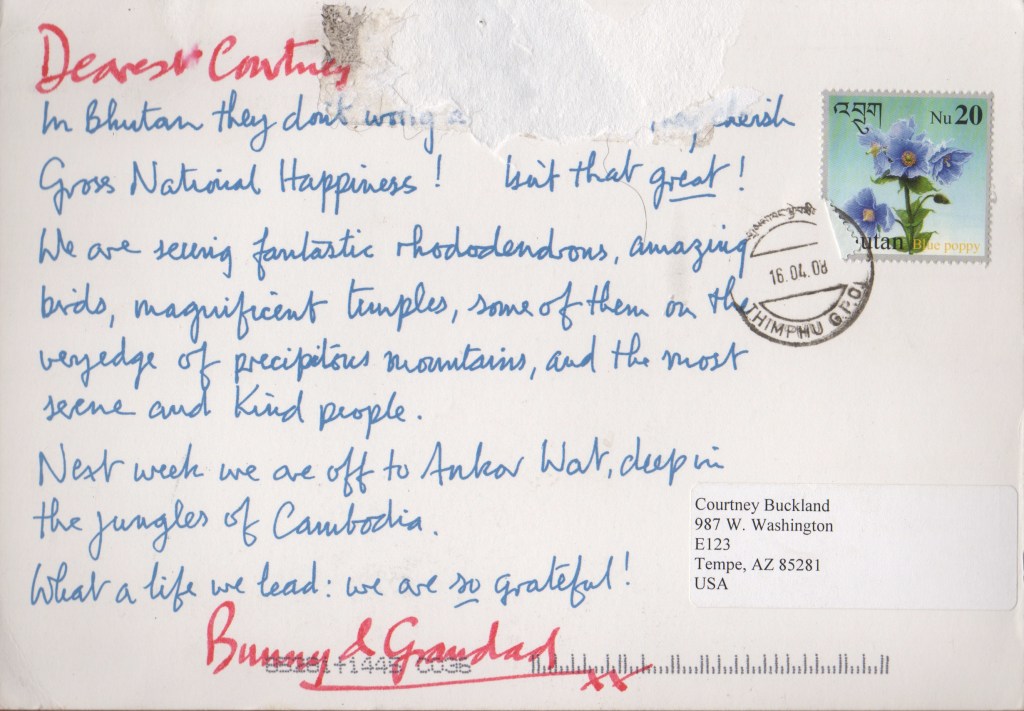 Dearest Courtney
In Bhutan they don't worry a they cherish
Gross National Happiness! Isn't that great!
We are seeing fantastic rhododendrons, amazing
birds, magnificent temples, some of them on the
very edge of precipitous mountains, and the most
serene and kind people.
Next week we are off to Ankor Wat, deep in
the jungles of Cambodia.
What a life we lead: we are so grateful!
Bunny & Grandad
xx
འབྲུག
Nu 20
utan Blue poppy
16.04.08
THIMPHU G.P.O.
Courtney Buckland
987 W. Washington
E123
Tempe, AZ 85281
USA
85281+1445 C036